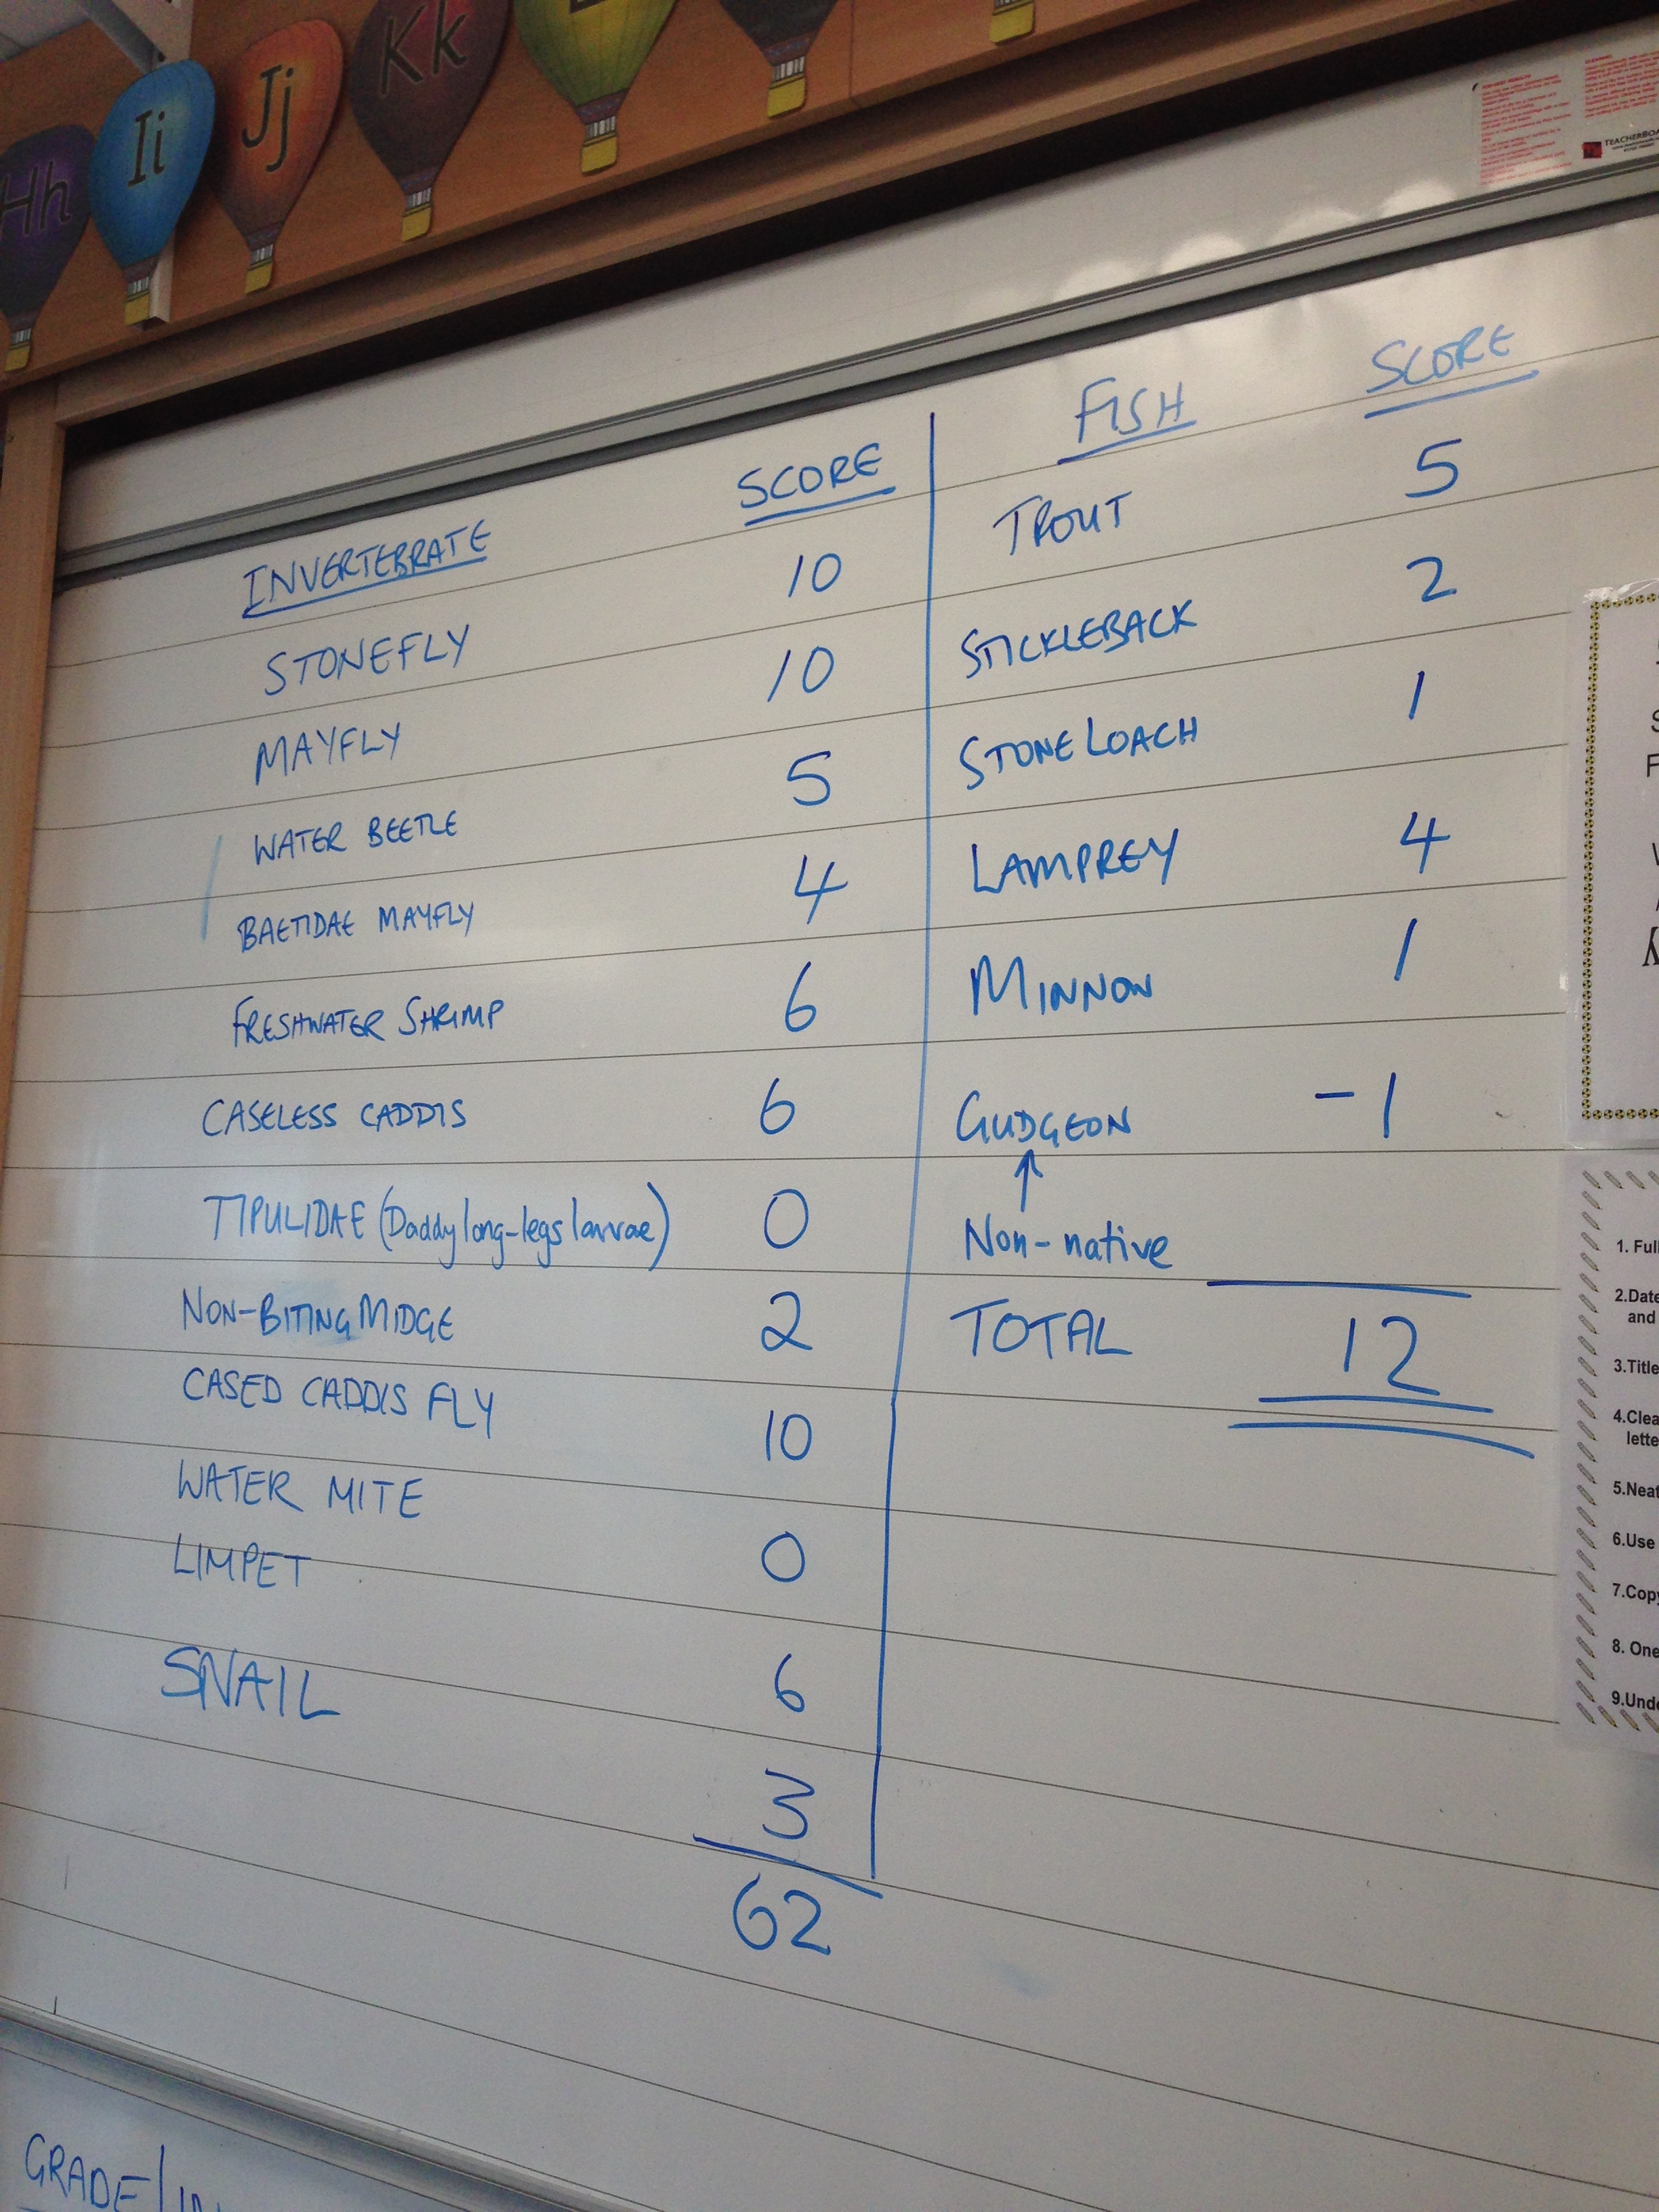 Hh Ii Jj Kk
TEACHERBOA
INVERTEBRATE SCORE
STONEFLY 10
MAYFLY 10
WATER BEETLE 5
BAETIDAE MAYFLY 4
FRESHWATER SHRIMP 6
CASELESS CADDIS 6
TIPULIDAE (Daddy long-legs larvae) 0
NON-BITING MIDGE 2
CASED CADDIS FLY 10
WATER MITE 0
LIMPET 6
SNAIL 3
62
FISH SCORE
TROUT 5
STICKLEBACK 2
STONE LOACH 1
LAMPREY 4
MINNOW 1
GUDGEON -1
↑
Non-native
TOTAL 12
1. Full
2.Date
and
3.Title
4.Clea
lette
5.Neat
6.Use
7.Copy
8. One
9.Unde
GRADE/IN